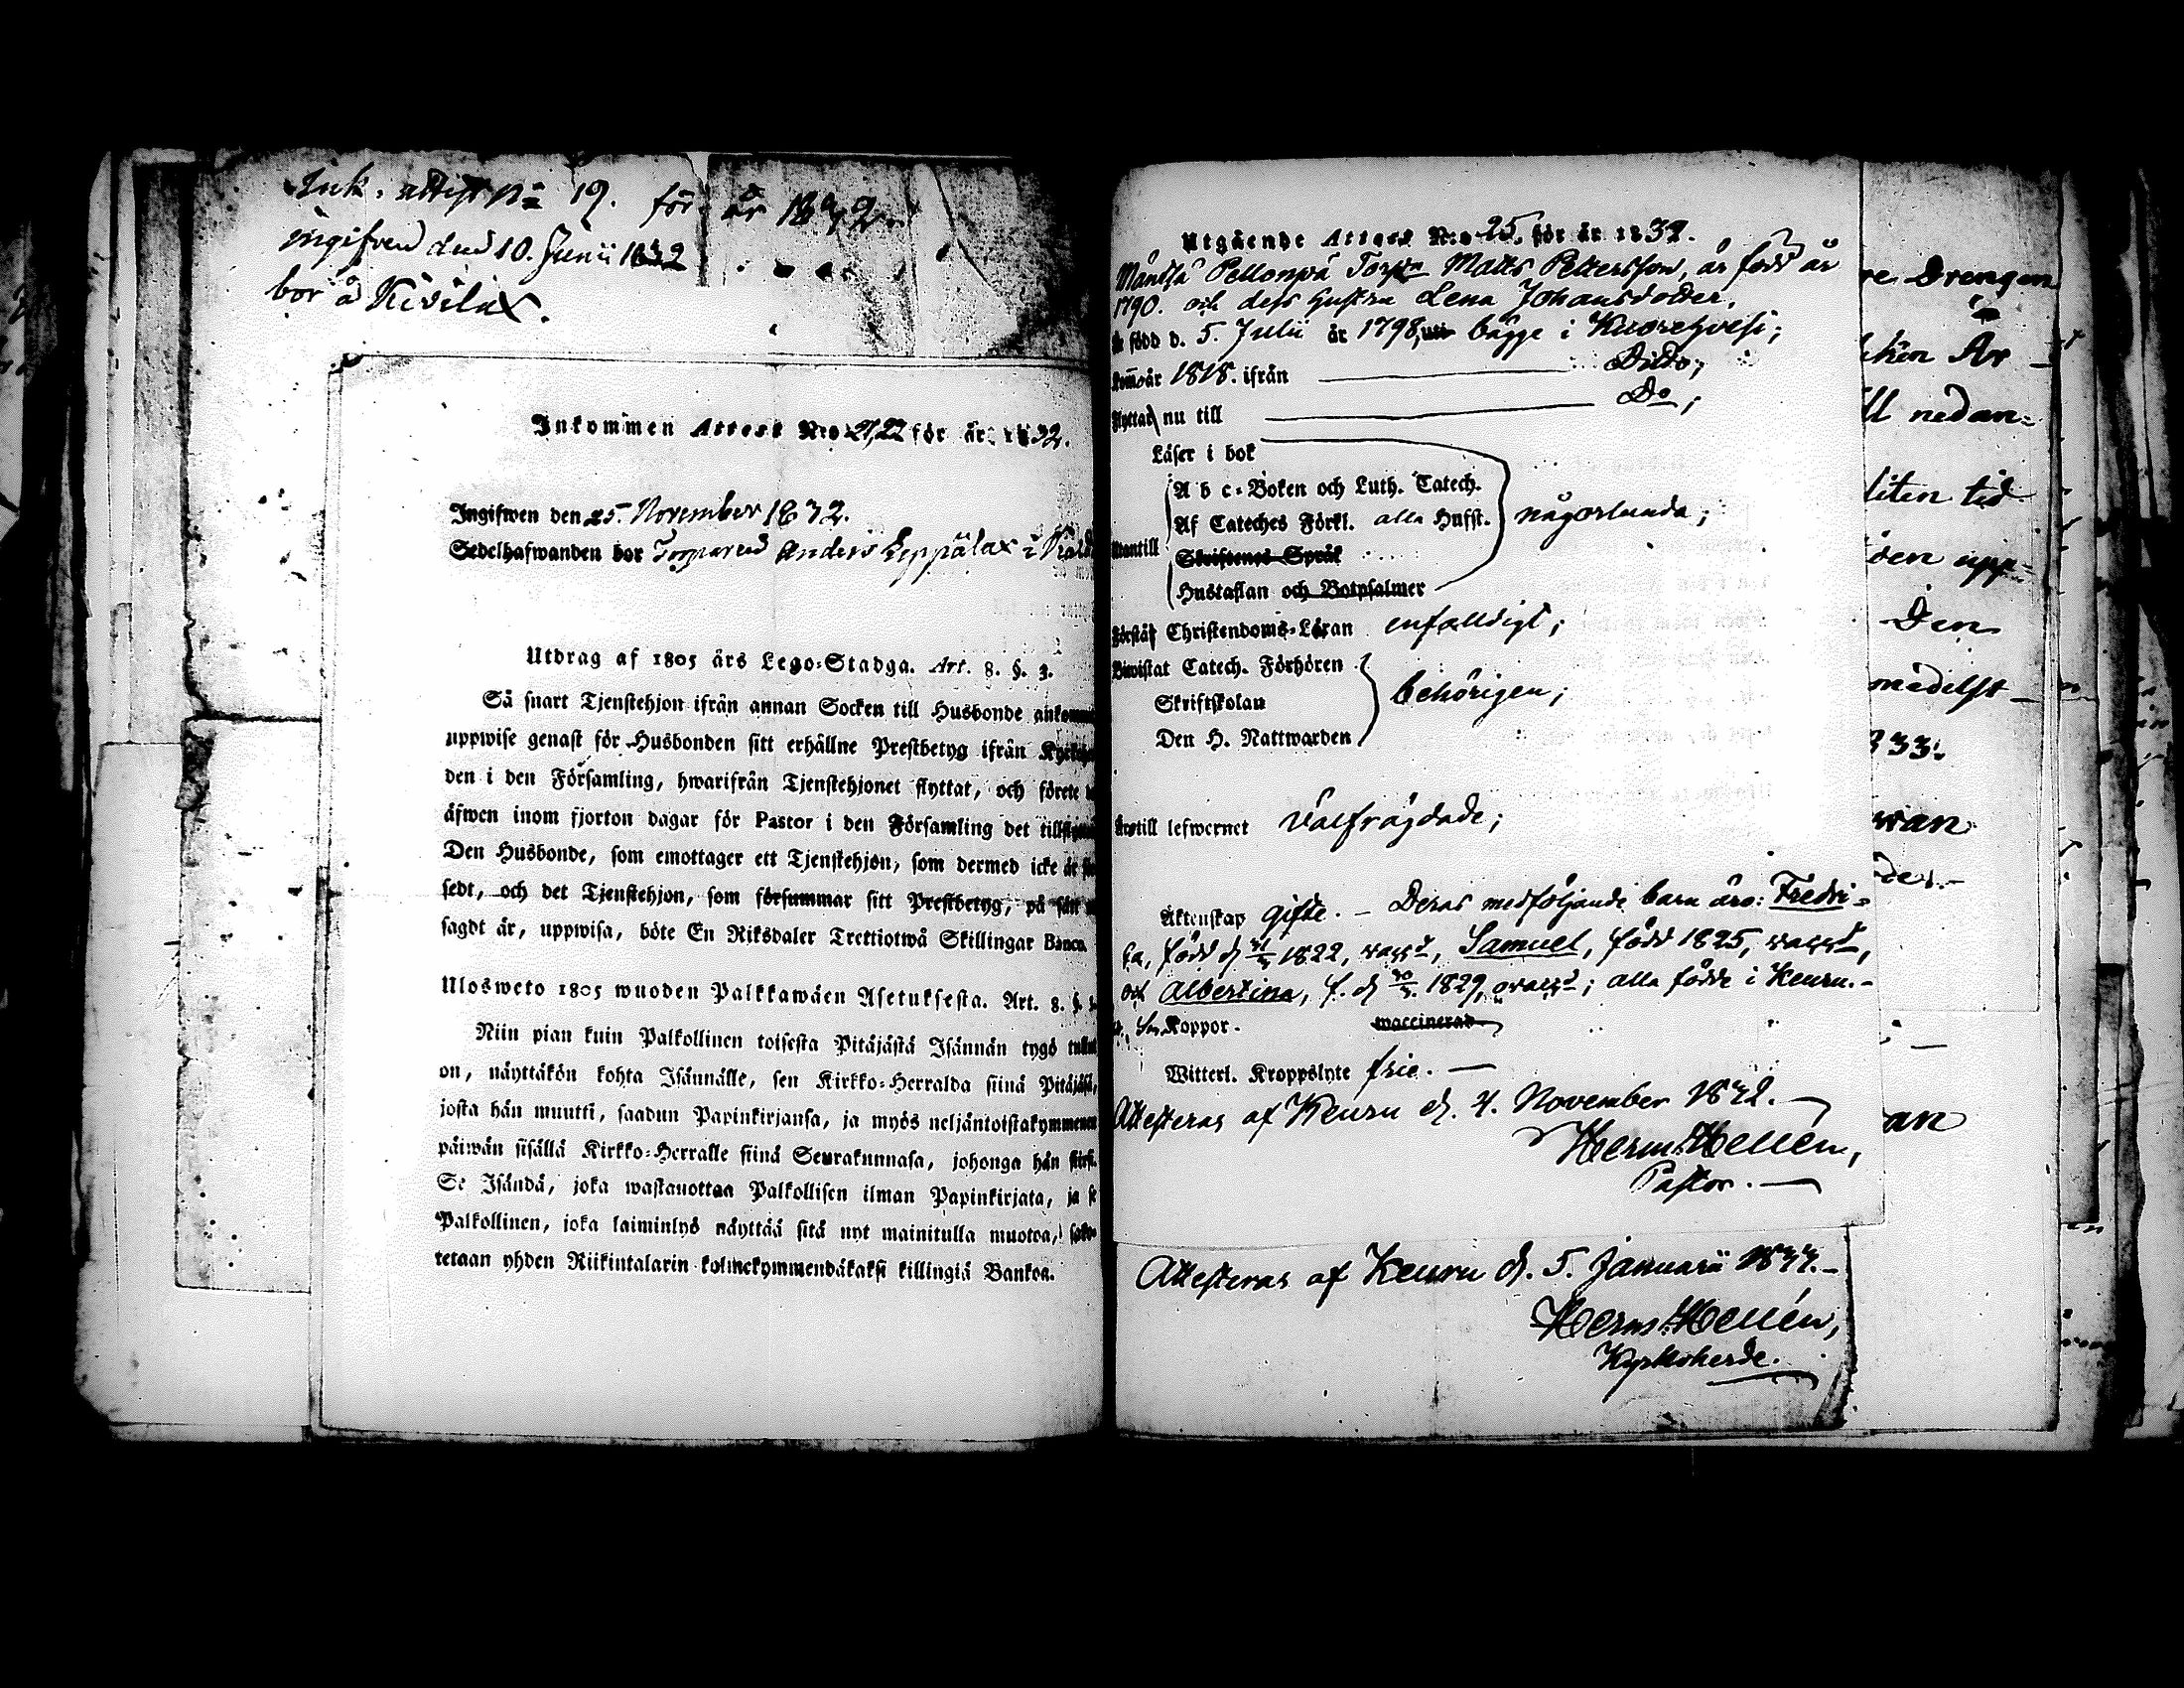 Ink. attest No 19. för år 1832.
ingifven den 10. Junii 1832
bor å Kivilax.
Inkommen Attest N:o 21,22 för år 1832.
Ingifwen den 25. November 1832.
Sedelhafwanden bor Torparen Anders Leppälax i
Utdrag af 1805 års Lego-Stadga. Art. 8. §. 3.
Så snart Tjenstehjon ifrån annan Socken till Husbonde
uppwise genast för Husbonden sitt erhållne Prestbetyg ifrån
den i den Församling, hwarifrån Tjenstehjonet flyttat, och förete
äfwen inom fjorton dagar för Pastor i den Församling det
Den Husbonde, som emottager ett Tjenstehjon, som dermed icke är
sedt, och det Tjenstehjon, som försummar sitt Prestbetyg, på
sagdt är, uppwisa, böte En Riksdaler Trettiotwå Skillingar Banco.
Ulosweto 1805 wuoden Palkkawäen Asetuksesta. Art. 8. §.
Niin pian kuin Palkollinen toisesta Pitäjästä Isännän tygö
on, näyttäkön kohta Isännälle, sen Kirkko-Herralda siinä Pitäjäsä,
josta hän muutti, saadun Papinkirjansa, ja myös neljäntoistakymmenen
päiwän sisällä Kirkko-Herralle siinä Seurakunnasa, johonga hän
Se Isändä, joka wastanottaa Palkollisen ilman Papinkirjata, ja se
Palkollinen, joka laiminlyö näyttää sitä nyt mainitulla muotoa,
tetaan yhden Riikintalarin kolmekymmendäkaksi killingiä Bankoa.
Utgående Attest N:o 25. för år 1832.
Mändsä Pellonpä Matts Pettersson, är född år
1790. och dess hustru Lena Johansdotter,
är född d. 5. Julii år 1798, bägge i Kuorehvesi;
år 1818. ifrån Ditto;
Flyttar nu till Do;
Läser i bok
A b c-Boken och Luth. Catech.
Af Cateches Förkl. alla Hufst. någorlunda;
utantill
Skriftenes Språk
Hustaflan och Botpsalmer
Förstår Christendoms-Läran enfaldigt;
Biwistat Catech. Förhören
Skriftskolan behörigen;
Den H. Nattwarden
till lefwernet välfrägdade;
Äktenskap gifte. – Deras medföljande barn äro: Fredri-
ka, född d 1822, vacc:d, Samuel, född 1825, vacc:d,
och Albertina, f. d 1829, ovacc:d; alla födde i Keuru.-
Koppor. vaccinerad
Witterl. Kroppslyte frie. —
Attesteras af Keuru d. 4. November 1832.—
Herm: Hellén,
Pastor.—
Attesteras af Keuru d. 5. Januarii 1833.–
Herm: Hellén,
Kyrkoherde.
re Drengen
ken Ar
ll nedan=
liten tid
den upp=
Den
medelst
833.
wan
des.-
an